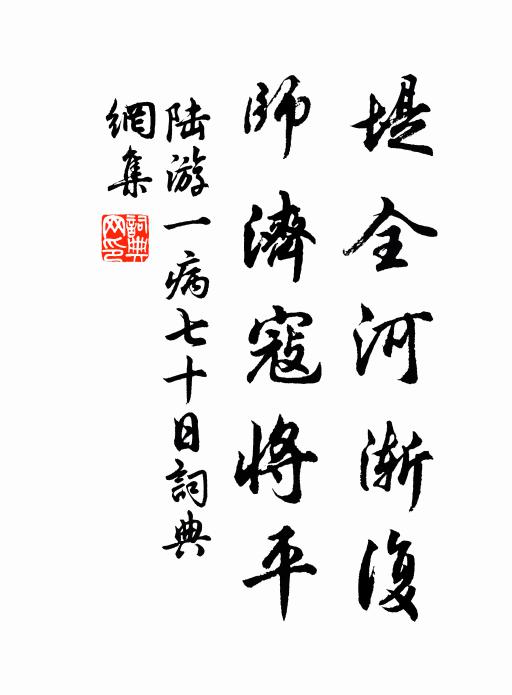 堤全河漸復
師濟寇將平
陆游一病七十日詞典
網集
詞典网印